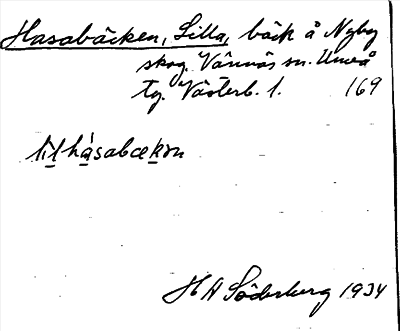 Hasabäcken, Lilla, bäck å Nyby
skog. Vännäs sn. Umeå
tg. Västerb. l. 169
lìlhàsabækən
H A Söderberg 1934